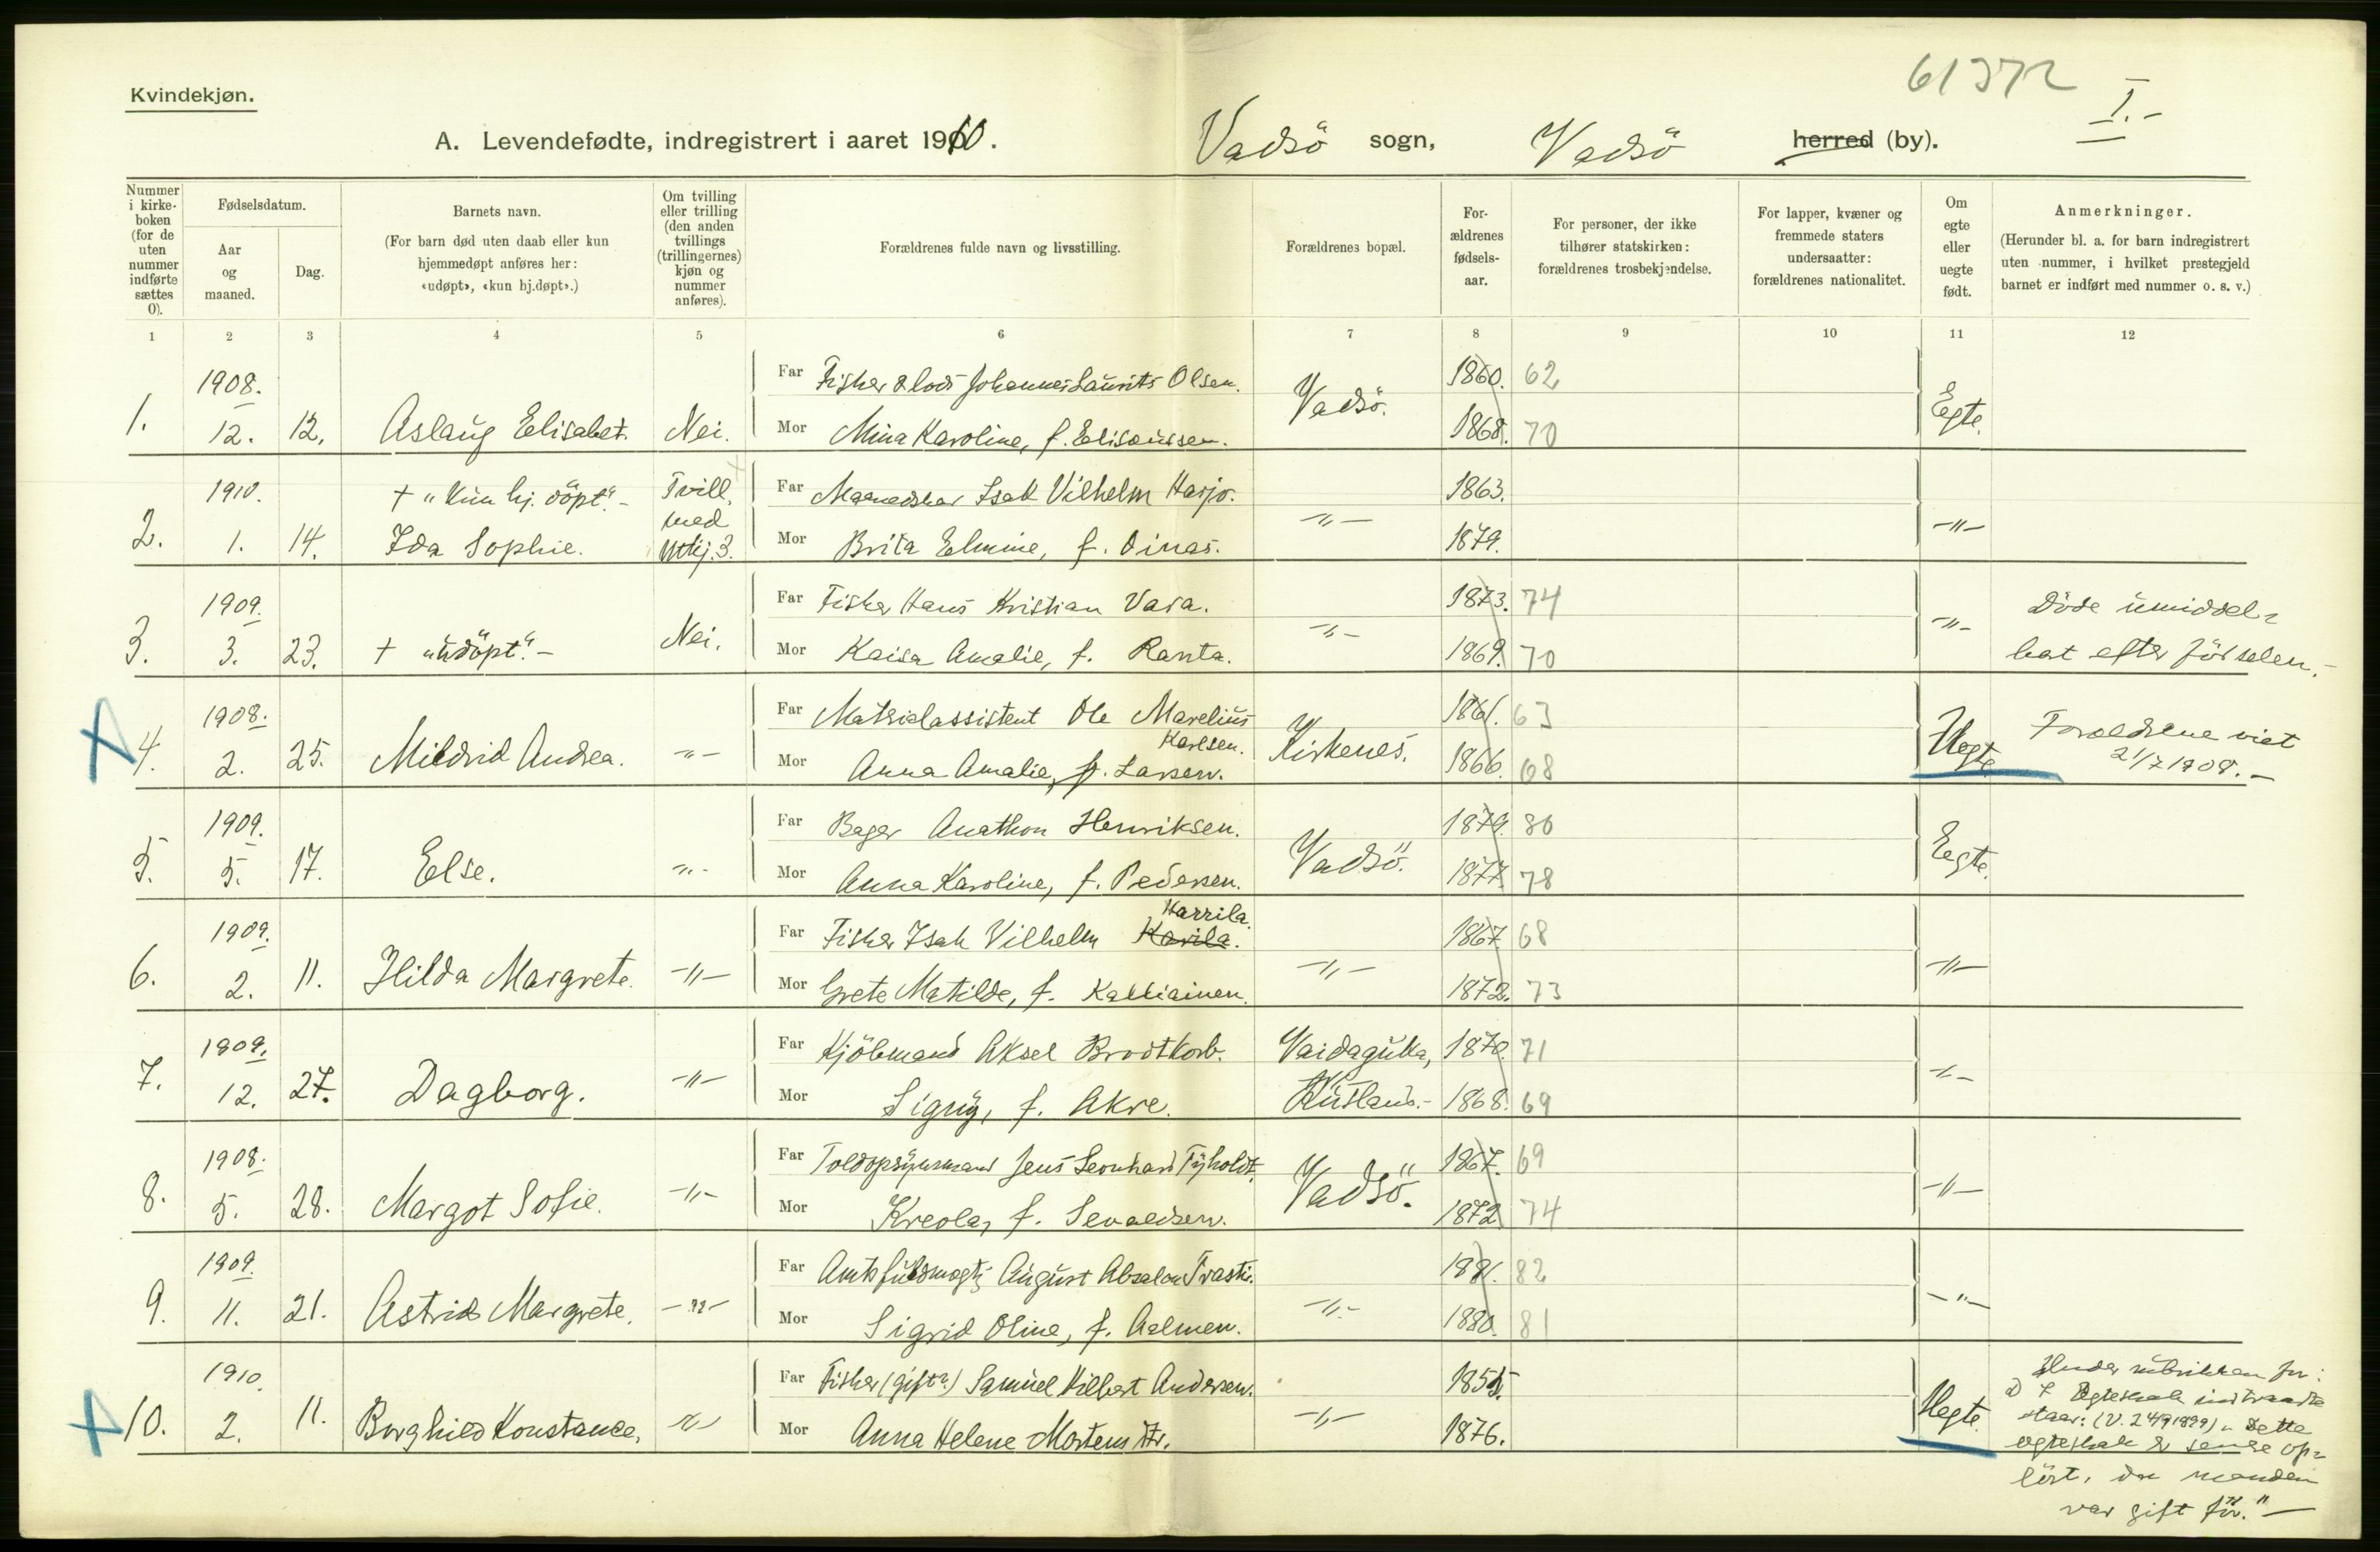 61372
I.-
Kvindekjøn.
A. Levendefødte, indregistrert i aaret 1910. Vadsö sogn, Vadsö herred (by).
Nummer i kirke-boken (for de uten nummer indførte sættes 0).
Fødselsdatum.
Aar og maaned.
Dag.
Barnets navn.
(For barn død uten daab eller kun hjemmedøpt anføres her: «udøpt», «kun hj.døpt».)
Om tvilling eller trilling (den anden tvillings (trillingernes) kjøn og nummer anføres).
Forældrenes fulde navn og livsstilling.
Forældrenes bopæl.
For-ældrenes fødsels-aar.
For personer, der ikke tilhører statskirken: forældrenes trosbekjendelse.
For lapper, kvæner og fremmede staters undersaatter: forældrenes nationalitet.
Om egte eller uegte født.
Anmerkninger.
(Herunder bl. a. for barn indregistrert uten nummer, i hvilket prestegjeld barnet er indført med nummer o. s. v.)
1 2 3 4 5 6 7 8 9 10 11 12
1908. Far Fisker & lods Johannes Laurits Olsen. Vadsö. 1860. 62 Egte.
1. 12. 12. Aslaug Elisabet. Nei. Mor Mina Karoline, f. Elisæussen. 1868. 70
1910. + "Kun hj. döpt". - Tvill. med Far Isak Vilhelm Harjo. -"- 1863. -"-
2. 1. 14. Ida Sophie. Mkj. 3. Mor Brita Elmine, f. Dinas. 1879.
1909. Far Fisker Hans Kristian Vara. -"- 1873. 74 -"- Döde umiddel-
3. 3. 23. + "udöpt". - Nei. Mor Kaisa Amalie, f. Ranta. 1869. 70 bart efter födselen. -
1908. Far Matrialassistent Ole Marelius Karlsen. Kirkenes. 1861. 63 Uegte Forældrene viet
4. 2. 25. Mildrid Andrea. -"- Mor Anna Amalie, f. Larsen. 1866. 68 21/7 1908. -
1909. Far Bager Anathon Henriksen. Vadsö. 1879. 80 Egte.
5. 5. 17. Else. -"- Mor Anna Karoline, f. Pedersen. 1877. 78
1909. Far Fisker Isak Vilhelm Karila. Harrila. -"- 1867. 68 -"-
6. 2. 11. Hilda Margrete. -"- Mor Grete Matilde, f. Kalliainen. 1872. 73
1909. Far Kjöbmand Aksel Brodtkorb. Vaidaguba, 1870. 71 -"-
7. 12. 27. Dagborg. -"- Mor Signy, f. Akre. Rusland. - 1868. 69
1908. Far Toldopsynsmand Jens Leonhard Tyholdt. Vadsö. 1867. 69 -"-
8. 5. 28. Margot Sofie. -"- Mor Kreola, f. Sevaldsen. 1872 74
1909. Far Amtsfuldmægtig August Absalon Trasti. -"- 1881. 82 -"-
9. 11. 21. Astrid Margrete. -"- Mor Sigrid Oline, f. Aalmen. 1880. 81
1910. Far Fisker (gift?) Samuel Hilbert Andersen. -"- 1855. Uegte. Under rubrikken for:
10. 2. 11. Borghild Konstance. -"- Mor Anna Helene Mortens dtr. 1876.
Egteskab indtraadte
staar: (V. 24/9 1899) " Dette
egteskab er senere op-
löst, da manden
var gift för." -